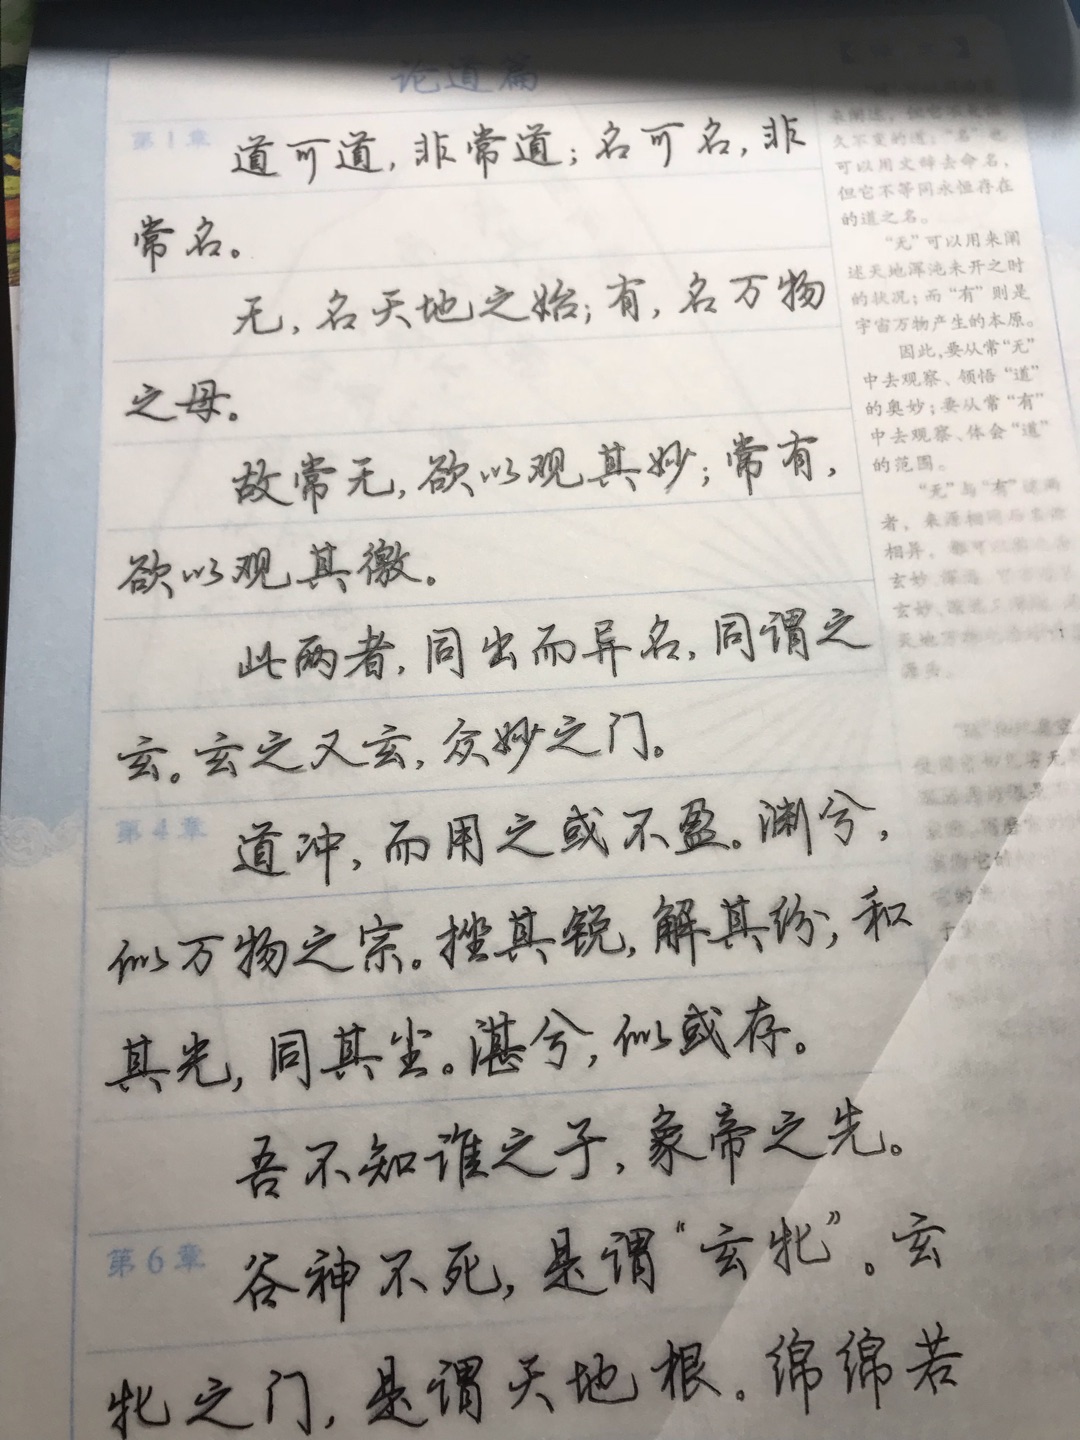 论道篇
第1章
道可道，非常道；名可名，非
常名。
无，名天地之始；有，名万物
之母。
故常无，欲以观其妙；常有，
欲以观其徼。
此两者，同出而异名，同谓之
玄。玄之又玄，众妙之门。
第4章
道冲，而用之或不盈。渊兮，
似万物之宗。挫其锐，解其纷，和
其光，同其尘。湛兮，似或存。
吾不知谁之子，象帝之先。
第6章
谷神不死，是谓“玄牝”。玄
牝之门，是谓天地根。绵绵若
久不变的道；“名”也
可以用文辞去命名，
但它不等同永恒存在
的道之名。
“无”可以用来阐
述天地浑沌未开之时
的状况；而“有”则是
宇宙万物产生的本原。
因此，要从常“无”
中去观察、领悟“道”
的奥妙；要从常“有”
中去观察、体会“道”
的范围。
“无”与“有”这两
者，来源相同而名称
相异，都可以
玄妙、深远
玄妙、深远
天地万物
源头。